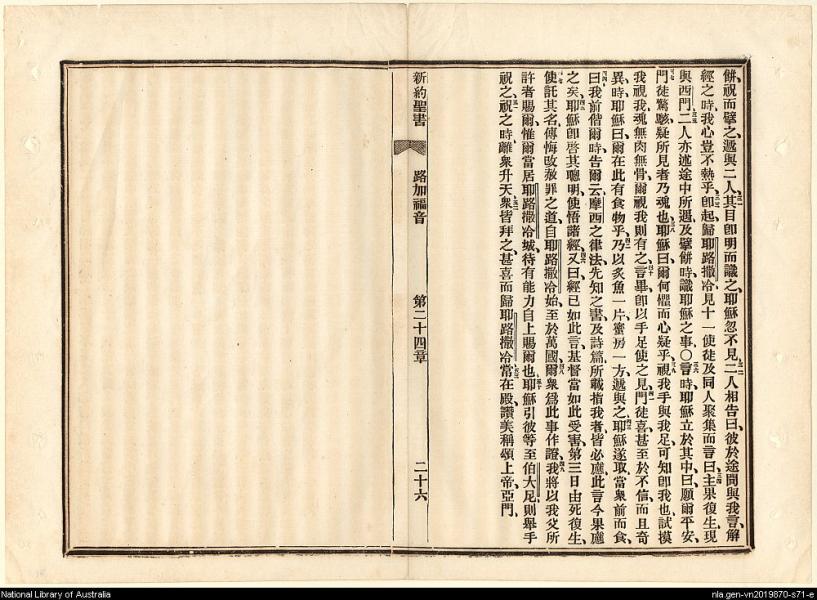 餅祝而擘之遞與二人其目卽明而識之耶穌忽不見二人相告曰彼於途間與我言解
經之時我心豈不熱乎卽起歸耶路撒冷見十一使徒及同人聚集而言曰主果復生現
與西門二人亦述途中所遇及擘餅時識耶穌之事〇言時耶穌立於其中曰願爾平安
門徒驚駭疑所見者乃魂也耶穌曰爾何懼而心疑乎視我手與我足可知卽我也試摸
我視我魂無肉無骨爾視我則有之言畢卽以手足使之見門徒喜甚至於不信而且奇
異時耶穌曰爾在此有食物乎乃以炙魚一片蜜房一方遞與之耶穌遂取當衆前而食
曰我前偕爾時告爾云摩西之律法先知之書及詩篇所載指我者皆必應此言今果應
之矣耶穌卽啓其聰明使悟諸經又曰經已如此言基督當如此受害第三日由死復生
使託其名傳悔改赦罪之道自耶路撒冷始至於萬國爾衆爲此事作證我將以我父所
許者賜爾惟爾當居耶路撒冷城待有能力自上賜爾也耶穌引彼等至伯大尼則舉手
祝之祝之時離衆升天衆皆拜之甚喜而歸耶路撒冷常在殿讚美稱頌上帝亞門
新約聖書 路加福音 第二十四章 二十六
National Library of Australia
nla.gen-vn2019870-s71-e